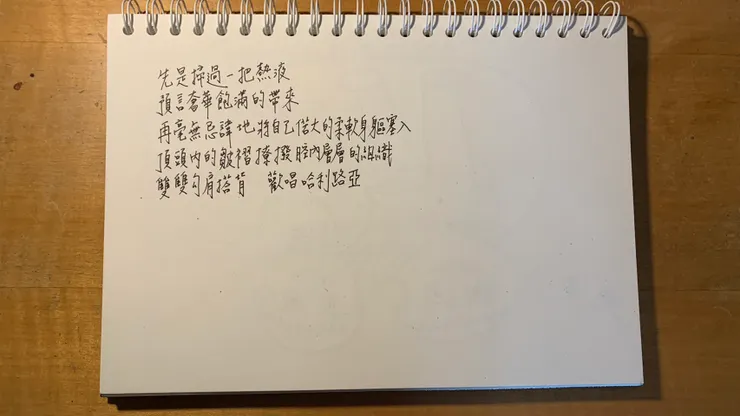 先是掃過一把熱液
預言奢華飽滿的帶來
再毫無忌諱地將自己偌大的柔軟身軀塞入
頂頭內的皺褶撩撥腔內層層的組織
雙雙勾肩搭背　歡唱哈利路亞